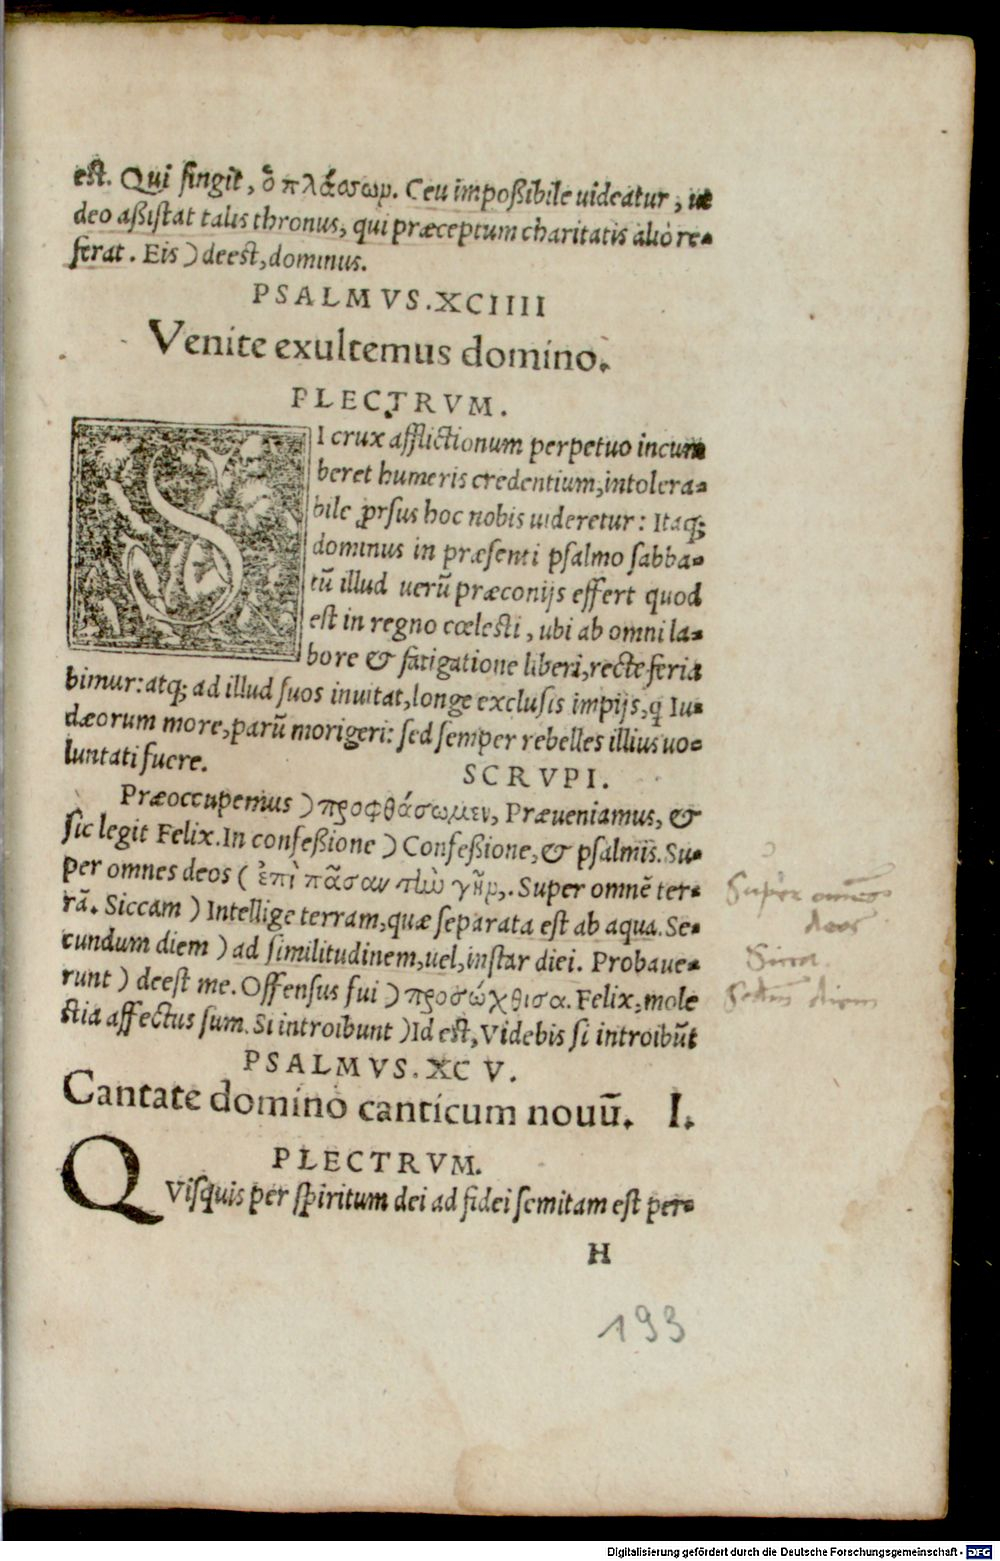 est. Qui fingit, ὁ πλάσσων. Ceu impoßibile uideatur, ut
deo aßistat talis thronus, qui præceptum charitatis alio re-
ferat. Eis ) deest, dominus.
PSALMVS.XCIIII
Venite exultemus domino.
PLECTRVM.
SI crux afflictionum perpetuo incum
beret humeris credentium, intolera-
bile ꝓrsus hoc nobis uideretur: Itaqꝫ
dominus in præsenti psalmo sabba-
tū illud uerū præconijs effert quod
est in regno cœlesti, ubi ab omni la-
bore & fatigatione liberi, recte feria
bimur: atqꝫ ad illud suos inuitat, longe exclusis impijs, q̄ Iu-
dæorum more, parū morigeri: sed semper rebelles illius uo-
luntati fuere.
SCRVPI.
Præoccupemus ) προφθάσωμεν, Præueniamus, &
sic legit Felix. In confeßione ) Confeßione, & psalmis. Su-
per omnes deos ( ἐπὶ πᾶσαν τὴν γῆν,. Super omnē ter-
rā. Siccam ) Intellige terram, quæ separata est ab aqua. Se-
cundum diem ) ad similitudinem, uel, instar diei. Probaue-
runt ) deest me. Offensus fui ) προσώχθισα. Felix, mole
stia affectus sum. Si introibunt ) Id est, Videbis si introibūt
Super omnes
deos
Sicca
Secundum diem
PSALMVS.XC V.
Cantate domino canticum nouū. I.
PLECTRVM.
QVisquis per spiritum dei ad fidei semitam est per-
H
193
Digitalisierung gefördert durch die Deutsche Forschungsgemeinschaft - DFG